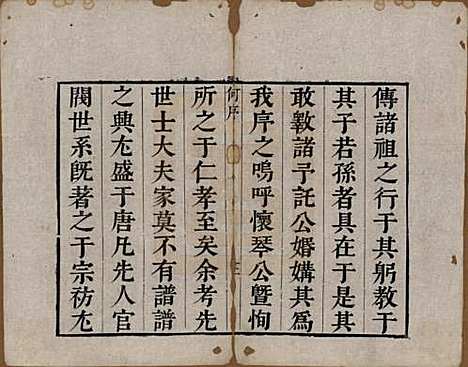 傳諸祖之行于其躬教于
其子若孫者具在于是其
敢斁諸予託公婚媾其爲
我序之嗚呼懷琴公曁恂
何序
所之于仁孝至矣余考先
世士大夫家莫不有譜譜
之興尤盛于唐凡先人官
閥世系旣著之于宗祊尤